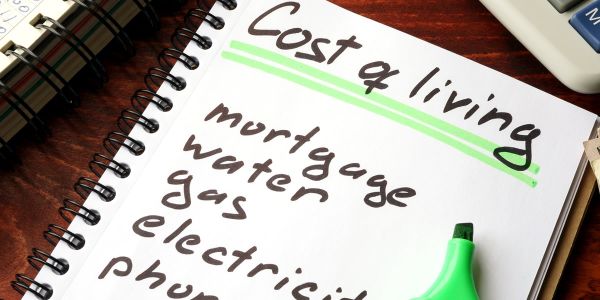 Cost of living
mortgage
water
gas
electricit
phon